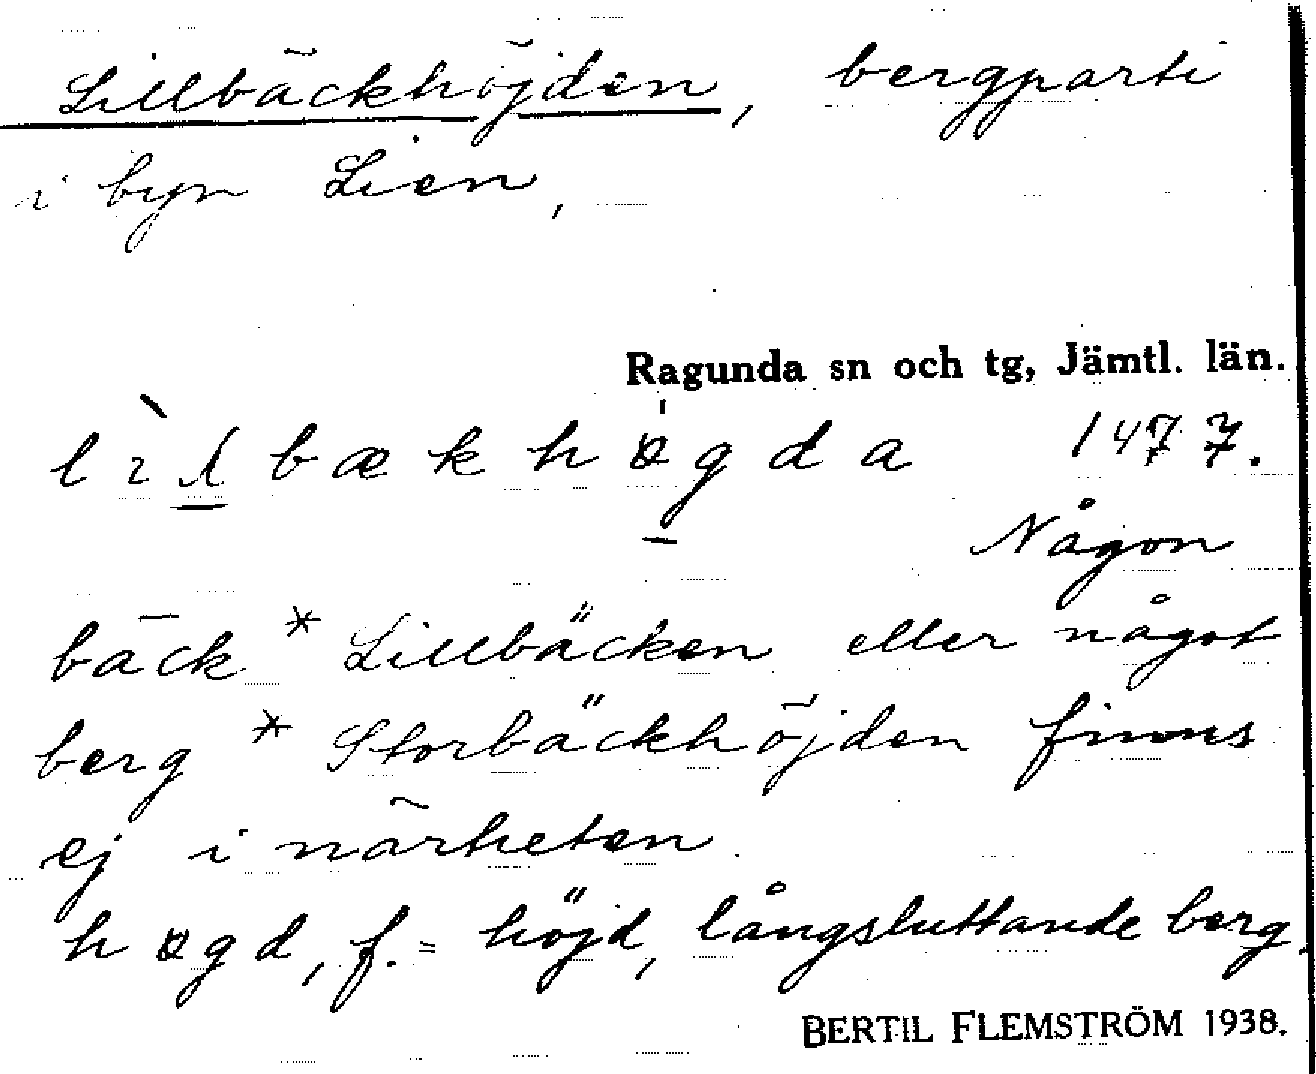 Lillbäckhöjden, bergparti
i byn Lien,
Ragunda sn och tg, Jämtl. län.
bækhøgda 1477.
Någon
bäck * Lillbäcken eller något
berg * Storbäckhöjden finns
ej i närheten.
høgd, f. = höjd, långsluttande berg.
BERTIL FLEMSTRÖM 1938.